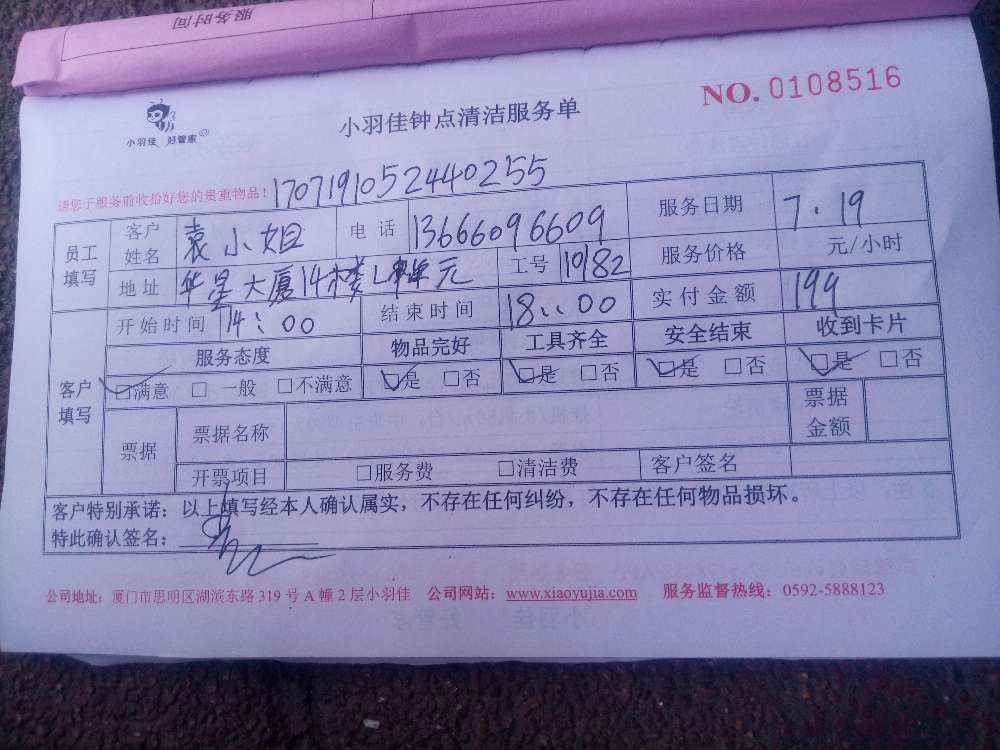 服务时间
小羽佳 好管家
小羽佳钟点清洁服务单
NO. 0108516
请您于服务前收拾好您的贵重物品! 1707191052440255
员工填写 客户姓名 袁小姐 电话 13666096609 服务日期 7.19
地址 华星大厦14楼L单元 工号 10182 服务价格 元/小时
客户填写 开始时间 14:00 结束时间 18:00 实付金额 199
服务态度 物品完好 工具齐全 安全结束 收到卡片
□满意 □一般 □不满意 □是 □否 □是 □否 □是 □否 □是 □否
票据 票据名称 票据金额
开票项目 □服务费 □清洁费 客户签名
客户特别承诺:以上填写经本人确认属实,不存在任何纠纷,不存在任何物品损坏。
特此确认签名:
公司地址:厦门市思明区湖滨东路319号A幢2层小羽佳 公司网站:www.xiaoyujia.com 服务监督热线:0592-5888123